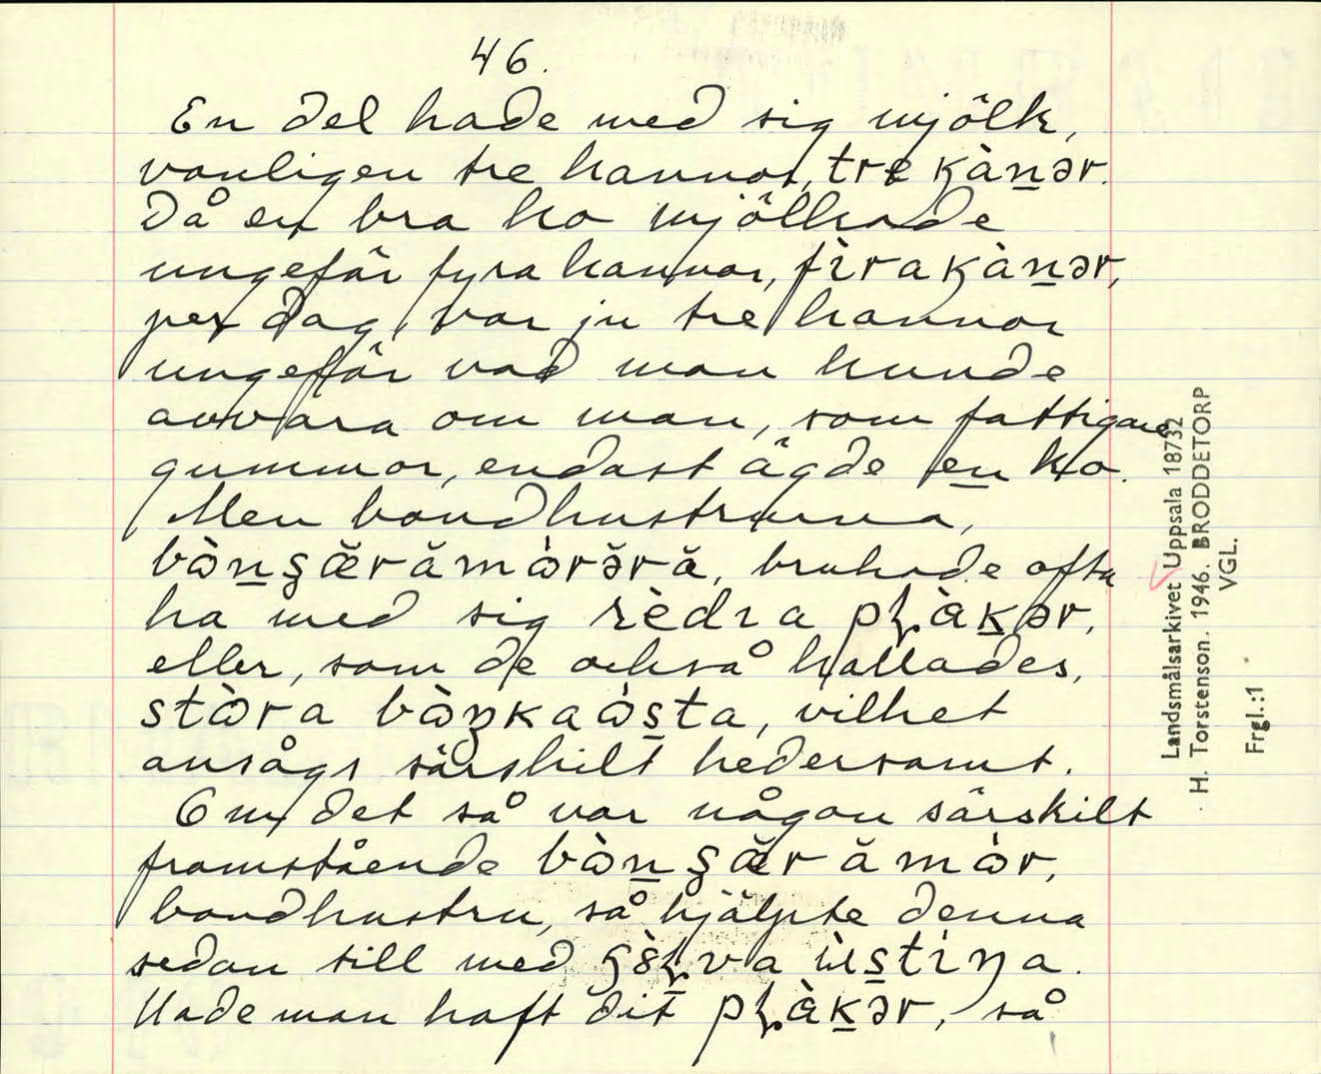 46.
En del hade med sig mjölk,
vanligen tre kannor, tre kànər.
Då en bra ko mjölkade
ungefär fyra kannor, fìrakànər,
per dag, var ju tre kannor
ungefär vad man kunde
avvara om man, som fattigare
gummor, endast ägde en ko.
Men bondhustrurna,
brukade ofta
ha med sig
eller, som de också kallades,
vilket
ansågs särskilt hedersamt.
Om det så var någon särskilt
framstående
bondhustru, så hjälpte denna
sedan till med
Hade man haft dit så
Landsmålsarkivet Uppsala 18732
H. Torstenson. 1946. BRODDETORP
VGL.
Frgl.:1